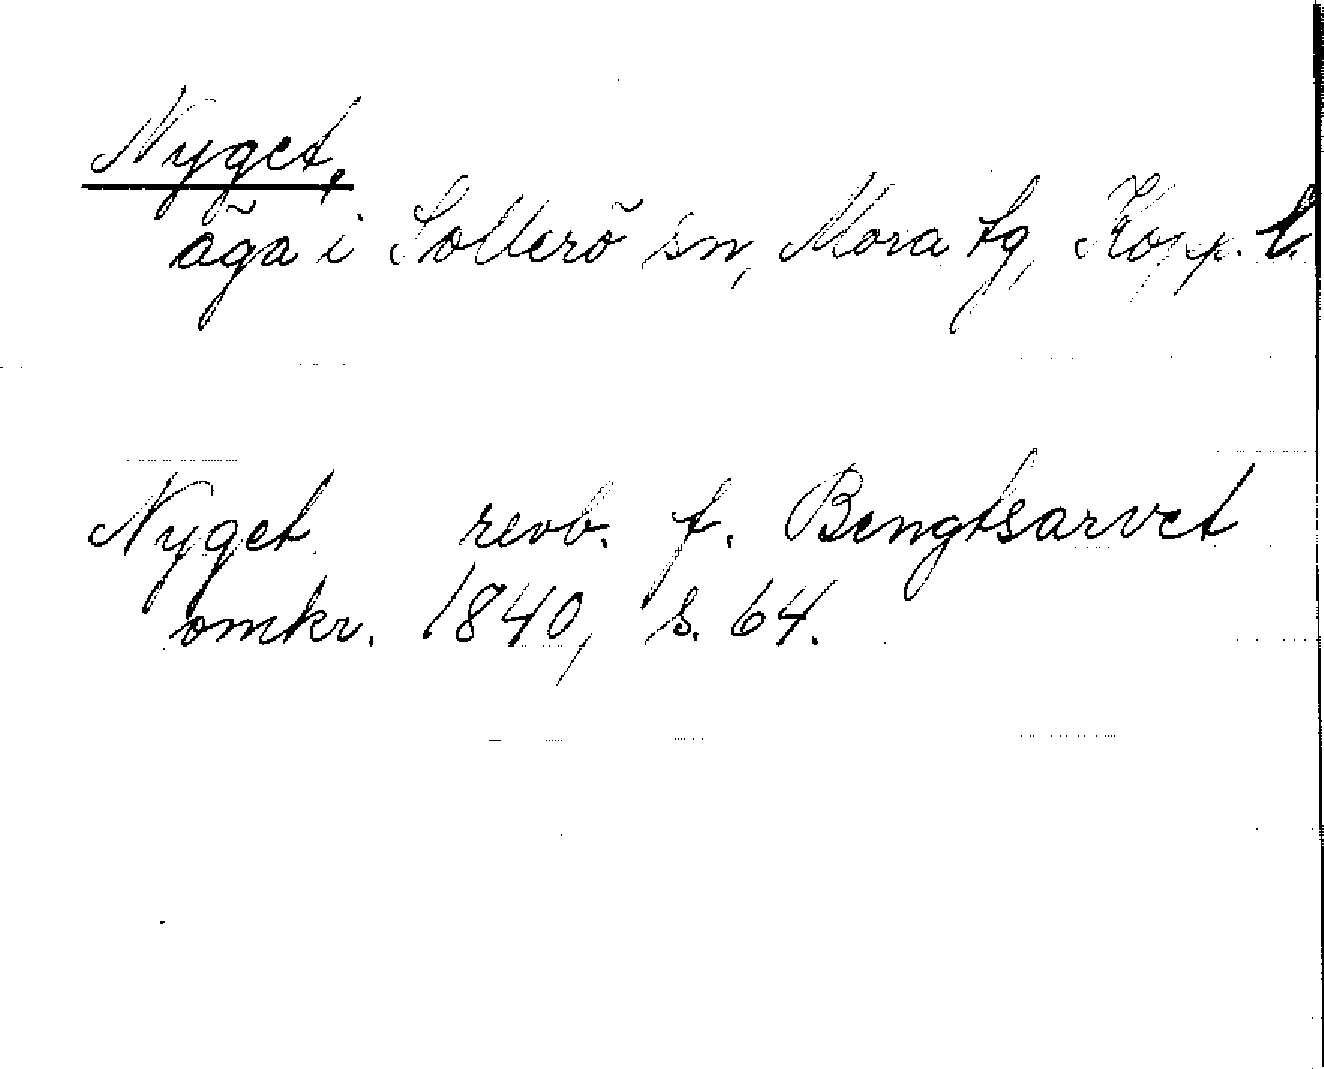 Nyget,
äga i Sollerö sn, Mora tg, Kopp. l.
Nyget revb. f. Bengtsarvet
omkr. 1840, s. 64.